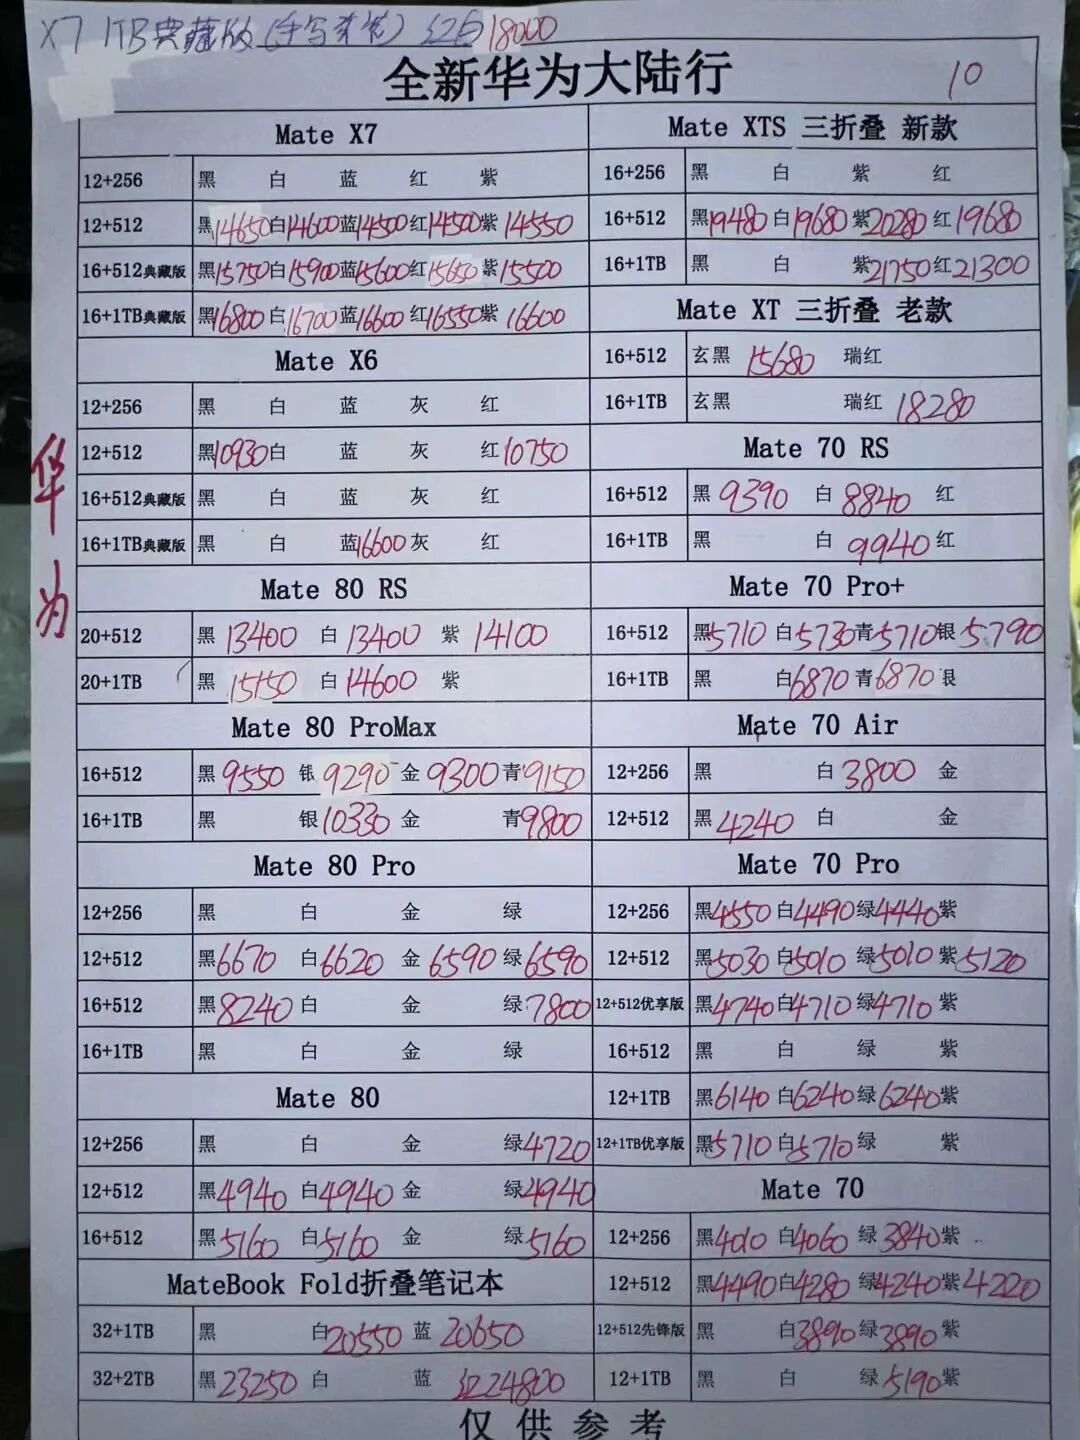 X7 1TB典藏版(手写套装) 红白18000
全新华为大陆行
10
华为
Mate X7
12+256 黑 白 蓝 红 紫
12+512 黑14650白14600蓝14500红14500紫14550
16+512典藏版 黑15750白15900蓝15600红15650紫15500
16+1TB典藏版 黑16800白16700蓝16600红16550紫16600
Mate X6
12+256 黑 白 蓝 灰 红
12+512 黑10930白 蓝 灰 红10750
16+512典藏版 黑 白 蓝 灰 红
16+1TB典藏版 黑 白 蓝16600灰 红
Mate 80 RS
20+512 黑 13400 白 13400 紫 14100
20+1TB 黑 15150 白 14600 紫
Mate 80 ProMax
16+512 黑 9550 银 9290 金 9300 青 9150
16+1TB 黑 银10330 金 青9800
Mate 80 Pro
12+256 黑 白 金 绿
12+512 黑6670 白6620 金 6590 绿6590
16+512 黑8240 白 金 绿7800
16+1TB 黑 白 金 绿
Mate 80
12+256 黑 白 金 绿4720
12+512 黑4940 白4940 金 绿4940
16+512 黑5160 白5160 金 绿5160
MateBook Fold折叠笔记本
32+1TB 黑 白20550 蓝 20650
32+2TB 黑23250 白 蓝 24800
Mate XTS 三折叠 新款
16+256 黑 白 紫 红
16+512 黑19480 白19680 紫20280 红19680
16+1TB 黑 白 紫21750红21300
Mate XT 三折叠 老款
16+512 玄黑 15680 瑞红
16+1TB 玄黑 瑞红 18280
Mate 70 RS
16+512 黑 9390 白 8840 红
16+1TB 黑 白 9940 红
Mate 70 Pro+
16+512 黑5710 白5730青5710银5790
16+1TB 黑 白6870 青6870 银
Mate 70 Air
12+256 黑 白 3800 金
12+512 黑 4240 白 金
Mate 70 Pro
12+256 黑4550 白4490绿4440紫
12+512 黑5030 白5010 绿5010 紫5120
12+512优享版 黑4740白4710绿4710 紫
16+512 黑 白 绿 紫
12+1TB 黑6140 白6240绿6240紫
12+1TB优享版 黑5710白5710绿 紫
Mate 70
12+256 黑4010 白4060 绿3840紫
12+512 黑4490白4280 绿4240紫4220
12+512先锋版 黑 白3890绿3890紫
12+1TB 黑 白 绿5190紫
仅供参考